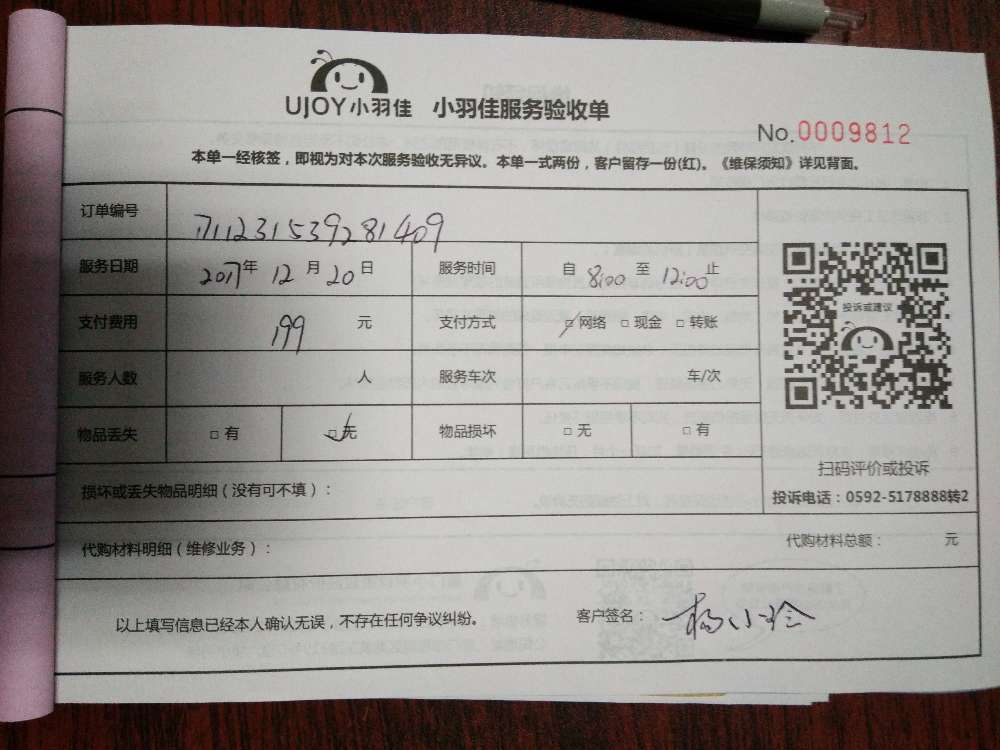 UJOY小羽佳 小羽佳服务验收单
No.0009812
本单一经核签，即视为对本次服务验收无异议。本单一式两份，客户留存一份(红)。《维保须知》详见背面。
订单编号 711231539281409
服务日期 2017年 12月 20日 服务时间 自 8:00 至 12:00止
投诉或建议
支付费用 199 元 支付方式 □网络 □现金 □转账
服务人数 人 服务车次 车/次
物品丢失 □有 □无 物品损坏 □无 □有
扫码评价或投诉
投诉电话：0592-5178888转2
损坏或丢失物品明细（没有可不填）：
代购材料明细（维修业务）： 代购材料总额： 元
以上填写信息已经本人确认无误，不存在任何争议纠纷。 客户签名：杨小玲